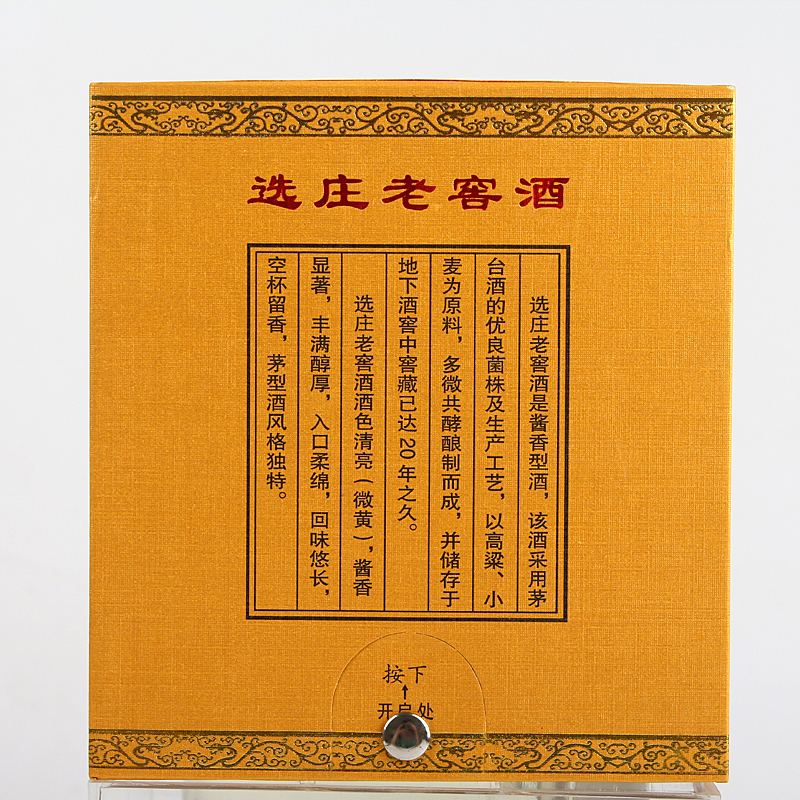 选庄老窖酒
选庄老窖酒是酱香型酒，该酒采用茅
台酒的优良菌株及生产工艺，以高粱、小
麦为原料，多微共酵酿制而成，并储存于
地下酒窖中窖藏已达20年之久。
选庄老窖酒酒色清亮（微黄），酱香
显著，丰满醇厚，入口柔绵，回味悠长，
空杯留香，茅型酒风格独特。
按下
开启处